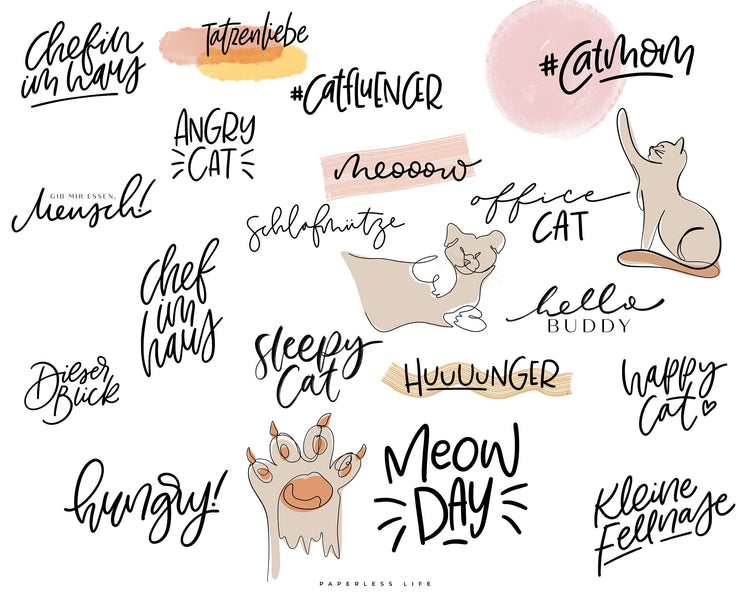 Chefin
im Haus
Tatzenliebe
#CATFLUENCER
#Catmom
ANGRY
CAT
meoooow
GIB MIR ESSEN,
Mensch!
Schlafmütze
office
CAT
Chef
im
Haus
hello
BUDDY
Sleepy
Cat
HUUUUNGER
Dieser
Blick
happy
Cat
hungry!
MEOW
DAY
Kleine
Fellnase
PAPERLESS LIFE